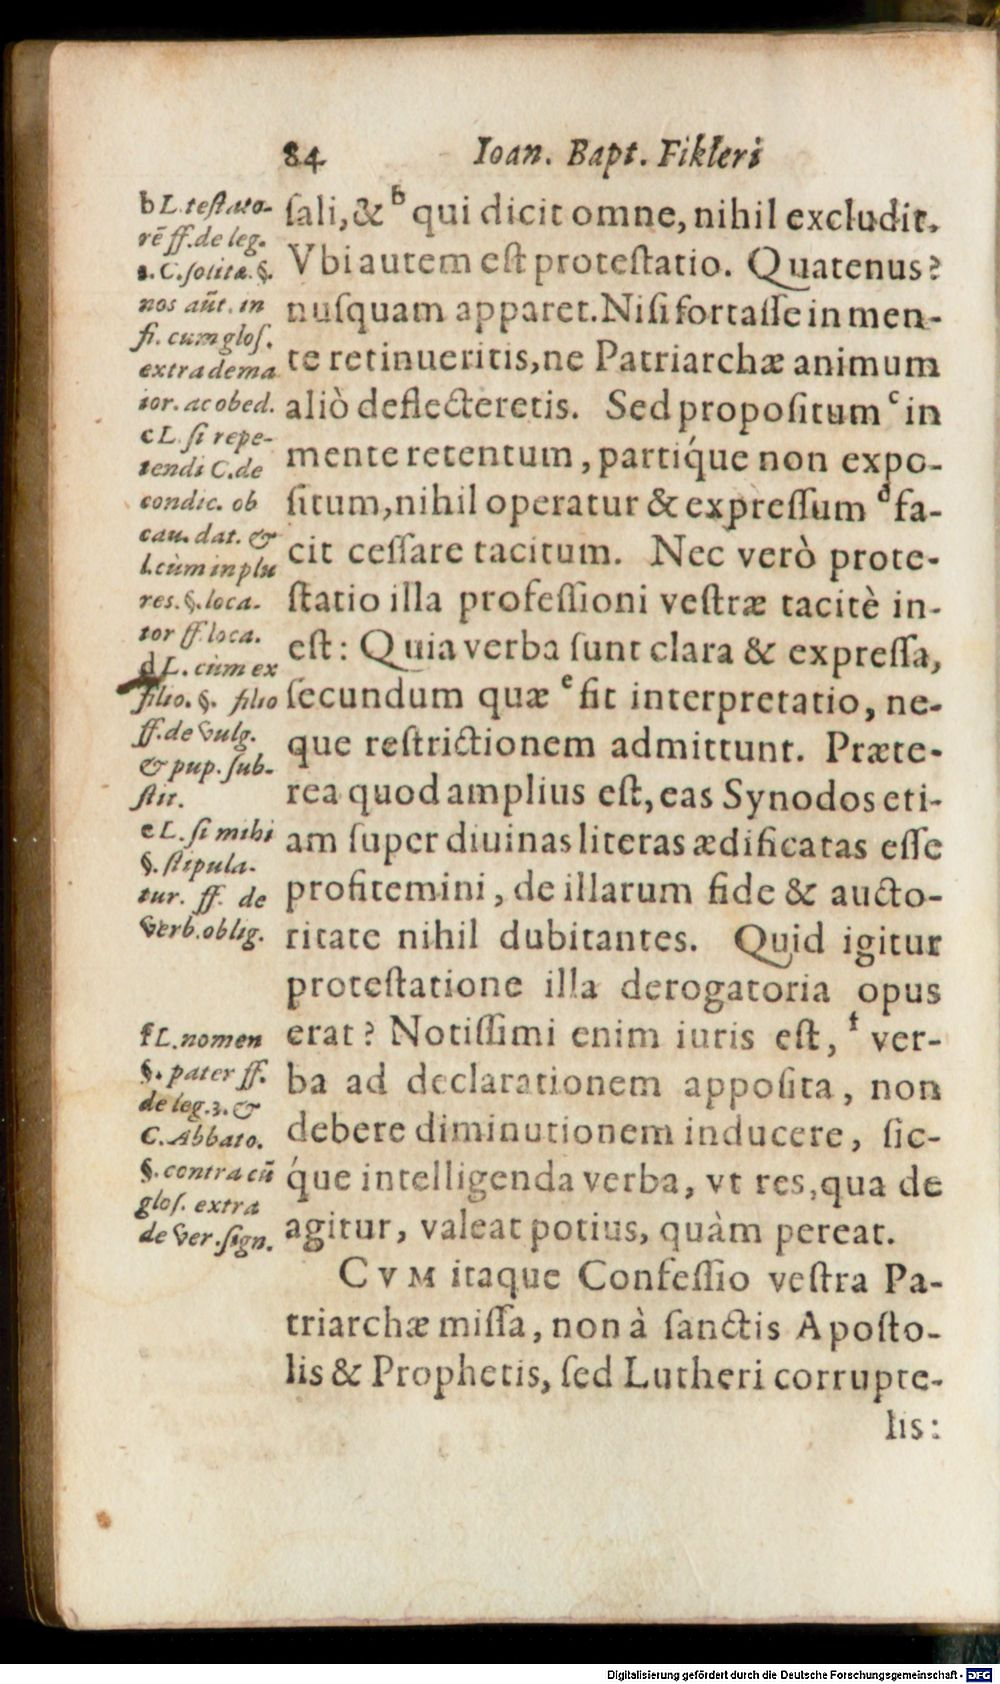 84 Ioan. Bapt. Fikleri
ſali,& ᵇ qui dicit omne, nihil excludit.
Vbi autem eſt proteſtatio. Quatenus?
nuſquam apparet. Niſi fortaſſe in men-
te retinueritis, ne Patriarchæ animum
aliò deflecteretis. Sed propoſitum ᶜ in
mente retentum, partíque non expo-
ſitum, nihil operatur & expreſſum ᵈ fa-
cit ceſſare tacitum. Nec verò prote-
ſtatio illa profeſſioni veſtræ tacitè in-
eſt: Quia verba ſunt clara & expreſſa,
ſecundum quæ ᵉ fit interpretatio, ne-
que reſtrictionem admittunt. Præte-
rea quod amplius eſt, eas Synodos eti-
am ſuper diuinas literas ædificatas eſſe
profitemini, de illarum fide & aucto-
ritate nihil dubitantes. Quid igitur
proteſtatione illa derogatoria opus
erat? Notiſſimi enim iuris eſt, ᶠ ver-
ba ad declarationem appoſita, non
debere diminutionem inducere, ſic-
q́ue intelligenda verba, vt res, qua de
agitur, valeat potius, quàm pereat.
CVM itaque Confeſſio veſtra Pa-
triarchæ miſſa, non à ſanctis Apoſto-
lis & Prophetis, ſed Lutheri corrupte-
lis:
b L. teſtato-
rē ff. de leg.
3. C. ſolitæ. §.
nos aūt. in
fi. cum gloſ.
extra de ma
ior. ac obed.
c L. ſi repe-
tendi C. de
condic. ob
cau. dat. &
l. cùm in plu
res. §. loca-
tor ff. loca.
d L. cùm ex
filio. §. filio
ff. de vulg.
& pup. ſub-
ſtit.
e L. ſi mihi
§. ſtipula-
tur. ff. de
verb. oblig.
f L. nomen
§. pater ff.
de leg. 3. &
C. Abbato.
§. contra cū
gloſ. extra
de ver. ſign.
Digitalisierung gefördert durch die Deutsche Forschungsgemeinschaft - DFG